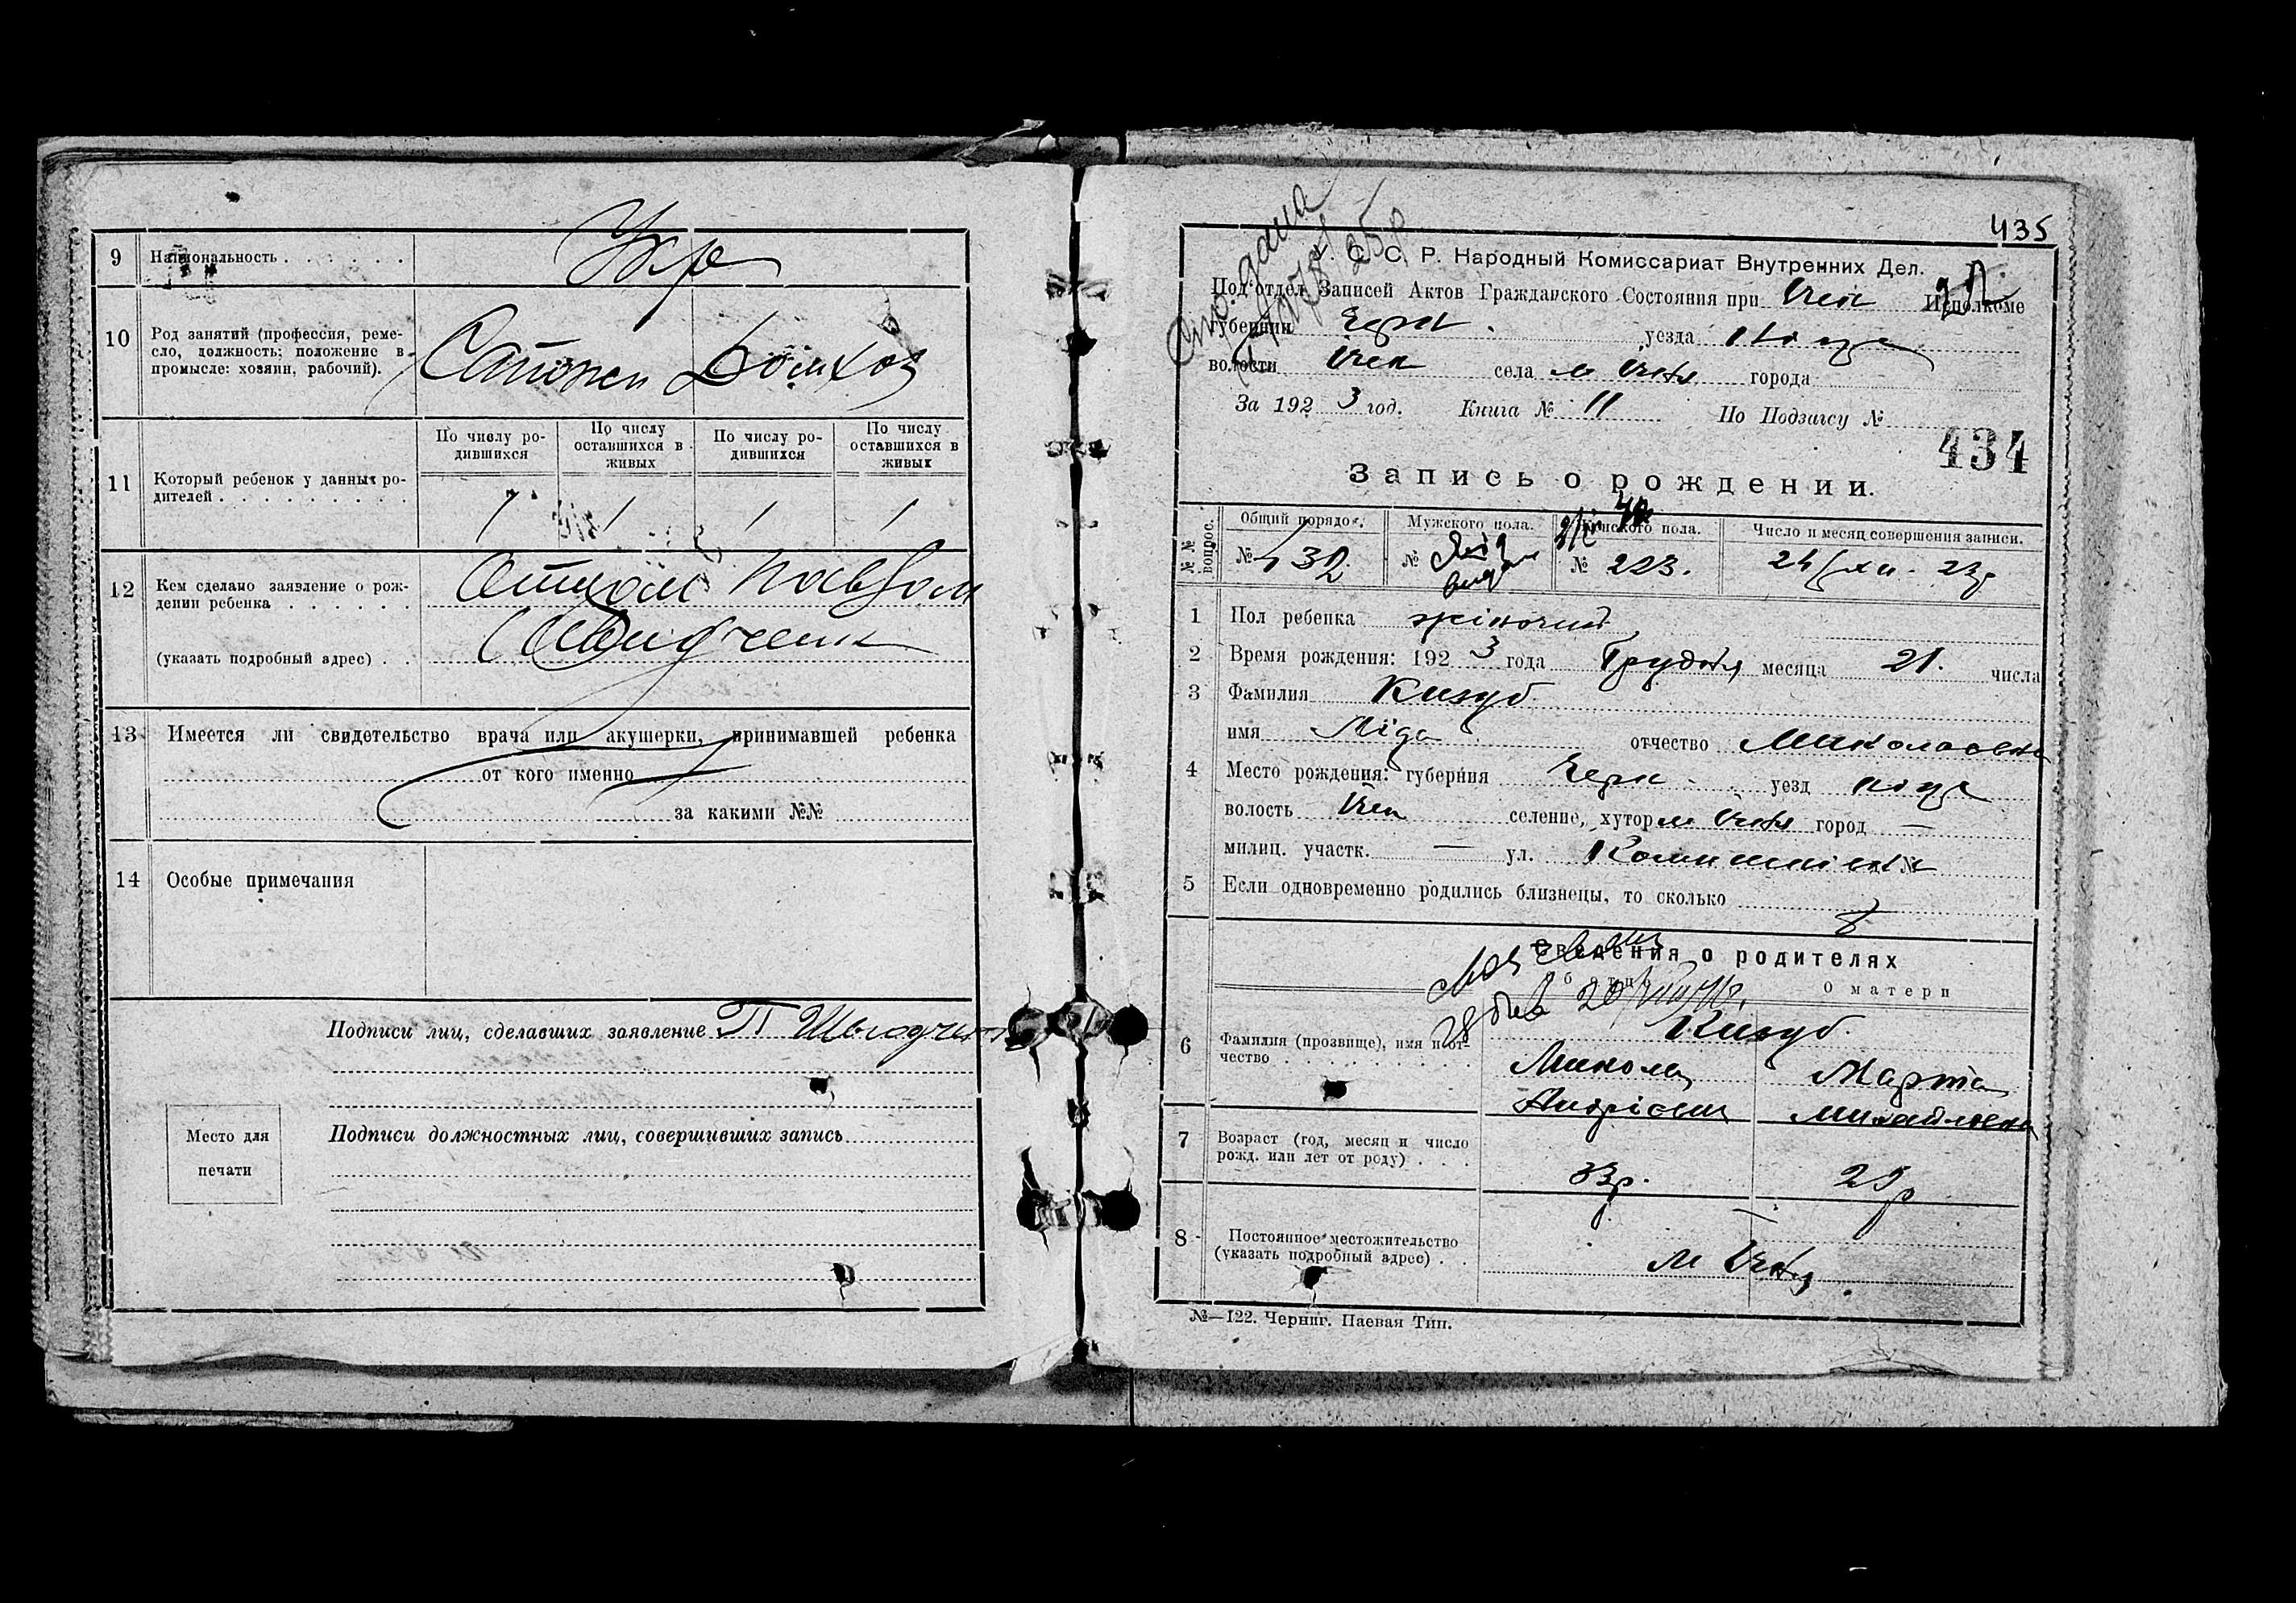 9 Национальность . . . . . . Укр
10 Род занятий (профессия, реме-
сло, должность; положение в
промысле: хозяин, рабочий).
Сапожн Домхоз
11 Который ребенок у данных ро-
дителей . . . . . . . . .
По числу ро-
дившихся
По числу
оставшихся в
живых
По числу ро-
дившихся
По числу
оставшихся в
живых
1 1 1 1
12 Кем сделано заявление о рож-
дении ребенка . . . . . . Отцом Павлом
(указать подробный адрес) . .
13 Имеется ли свидетельство врача или акушерки, принимавшей ребенка
от кого именно
за какими №№
14 Особые примечания
Подписи лиц, сделавших заявление П
Место для
печати
Подписи должностных лиц, совершивших запись
435
У. С. С. Р. Народный Комиссариат Внутренних Дел.
Под'отдел Записей Актов Гражданского Состояния при Ичен Исполкоме
губернии Черн. уезда Ніжи
волости Ичен села м Ичня города
За 192 3 год. Книга № 11 По Подзагсу №
434
Запись о рождении.
№ №
вопрос.
Общий порядок. Мужского пола. Женского пола. Число и месяц совершения записи.
№ 432. № № 223. 24/XII - 23р
1 Пол ребенка жіночий
2 Время рождения: 192 3 года Грудня месяца 21. числа
3 Фамилия Кизуб
имя Ліда отчество Миколаевна
4 Место рождения: губерния Черн уезд Ніжи
волость Ичен селение, хутор м Ичня город —
милиц. участк. — ул. №
5 Если одновременно родились близнецы, то сколько
Сведения о родителях
О б отце О матери
6 Фамилия (прозвище), имя и от-
чество . . . . . . . .
Кизуб
Микола Марта
Андрієвич Михайловна
7 Возраст (год, месяц и число
рожд. или лет от роду) . . .
33р. 25р
8 Постоянное местожительство
(указать подробный адрес) . .
м Ичня
№—122. Черниг. Паевая Тип.